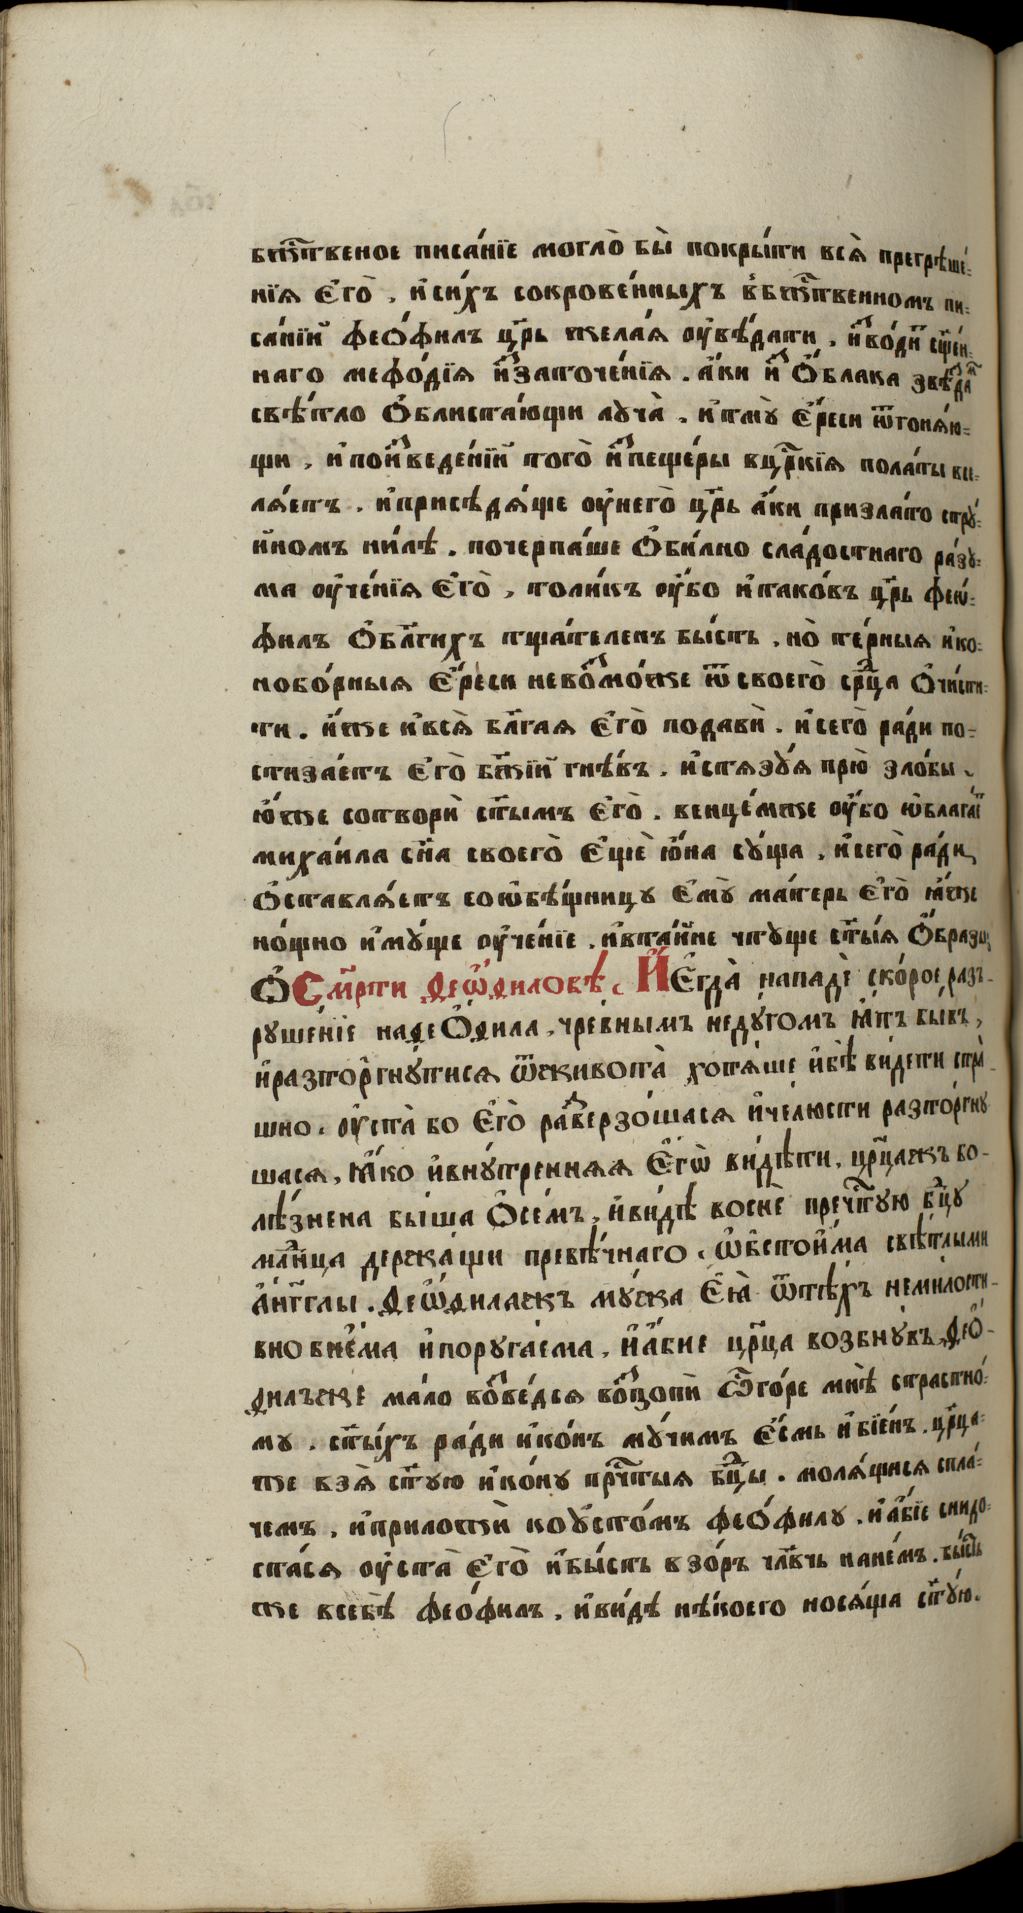 бж҃твеное писа́нїе могло̀ бы̀ покры́ти всѧ̀ прегрѣше́-
нїѧ є҆го̀ , и҆си́хъ сокрове́нныхъ в̾бж҃твенномъ пи-
са́нїи феѻ́филъ цр҃ь жела́ѧ ѹ҆вѣ́дати , и҆зво́ди сщ҃е́н-
наго мефо́дїѧ и҆ззаточе́нїѧ . а҆́ки и҆зѻ҆́блака звѣзда̀
свѣ́тло ѻ҆блиста́ющи луча̀ , и҆тму̀ є҆́реси ѿгонѧ́ю-
щи , и҆поизведе́нїи того̀ и҆спеще́ры вцр҃кїѧ пола́ты все-
лѧ́етъ . и҆присѣдѧ́ше ѹ҆него̀ цр҃ь а҆́ки призла́то стру́-
йномъ ни́лѣ . почерпа́ше ѻ҆би́лно сла́достнаго ра́зу-
ма ѹ҆че́нїѧ є҆го̀ , толи́къ ѹ҆́бо и҆тако́въ цр҃ь феѡ́-
филъ ѻ҆бл҃гихъ тща́теленъ бы́сть , но̀ те́рныѧ и҆ко-
нобо́рныѧ є҆́реси невозмо́же ѿ своего̀ ср҃ца ѻ҆чи́сти-
ти . и҆́же и҆всѧ̀ бл҃га́ѧ є҆го̀ подавѝ . и҆сего̀ ра́ди по-
стиза́етъ є҆го̀ бж҃їй гнѣ́въ . и҆стѧзу́ѧ прю̀ зло́бы ,
ю҆́же сотворѝ ст҃ымъ є҆го̀ . венце́мже ѹ҆́бо ѡ҆благаѧ
михаи́ла сн҃а своего̀ є҆щѐ ю҆́на су́ща , и҆сего̀ ра́ди
ѻ҆ставлѧ́етъ соѡ҆бѣ́щницу є҆му̀ ма́терь є҆го̀ ꙗ҆́же
но́щно и҆му́ще ѹ҆че́нїе , и҆вта́йне чту́ще ст҃ы́ѧ ѻ҆́бразы
ѻ҆ См҃рти феѡ҆филовѣ́ . И҆ Є҆гда̀ нападѐ ско́рое раз-
руше́нїе нафеѻ҆́фила , чре́внымъ неду́гомъ ꙗ҆́тъ бы́въ ,
и҆разто́ргнутисѧ ѿживота̀ хотѧ́ше и҆бѣ̀ ви́дети стра́-
шно . ѹ҆ста̀ бо є҆го̀ разверзо́шасѧ и҆че́люсти разто́ргну-
шасѧ , ꙗ҆́ко и҆вну́треннѧѧ є҆гѡ̀ ви́дѣти , цр҃цажъ бо-
лѣ́знена бы́ша ѻ҆се́мъ , и҆ви́дѣ воснѐ пречт҃ую бц҃у
млⷣнца держа́щи превѣ́чнаго . ѡ҆бстои́ма свѣ́тлыми
а҆́нгг҃лы . феѡ҆филажъ му́жа є҆ѧ̀ ѿтѣ́хъ неми́лости-
вно бие́ма и҆поруга́ема , и҆а҆́бие цр҃ца возбну́въ , феѻ҆-
филъже ма́ло возве́дсѧ возопѝ ѽго́ре мнѣ̀ страстно́-
му . ст҃ы́хъ ра́ди и҆ко́нъ му́чимъ є҆́смь и҆бїе́нъ . цр҃ца-
же взѧ̀ ст҃ую и҆ко́ну прчт҃ыѧ бц҃ы . молѧ́щисѧ спла́-
чемъ , и҆приложѝ коу҆сто́мъ феѻ́филу . и҆а҆́бїе снидо-
ста́сѧ ѹ҆ста̀ є҆го̀ и҆бы́сть взо́ръ чл҃вчь нане́мъ . бы́сть
же всебѣ̀ феѻ́филъ . и҆ви́дѣ нѣ́коего носѧ́ща ст҃у́ю .